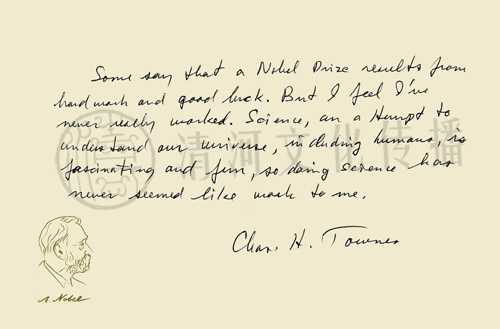 Some say that a Nobel Prize results from
hard work and good luck. But I feel I've
never really worked. Science, an attempt to
understand our universe, including humans, is
fascinating and fun, so doing science has
never seemed like work to me.
Chas. H. Townes
A. Nobel
清河文化传播